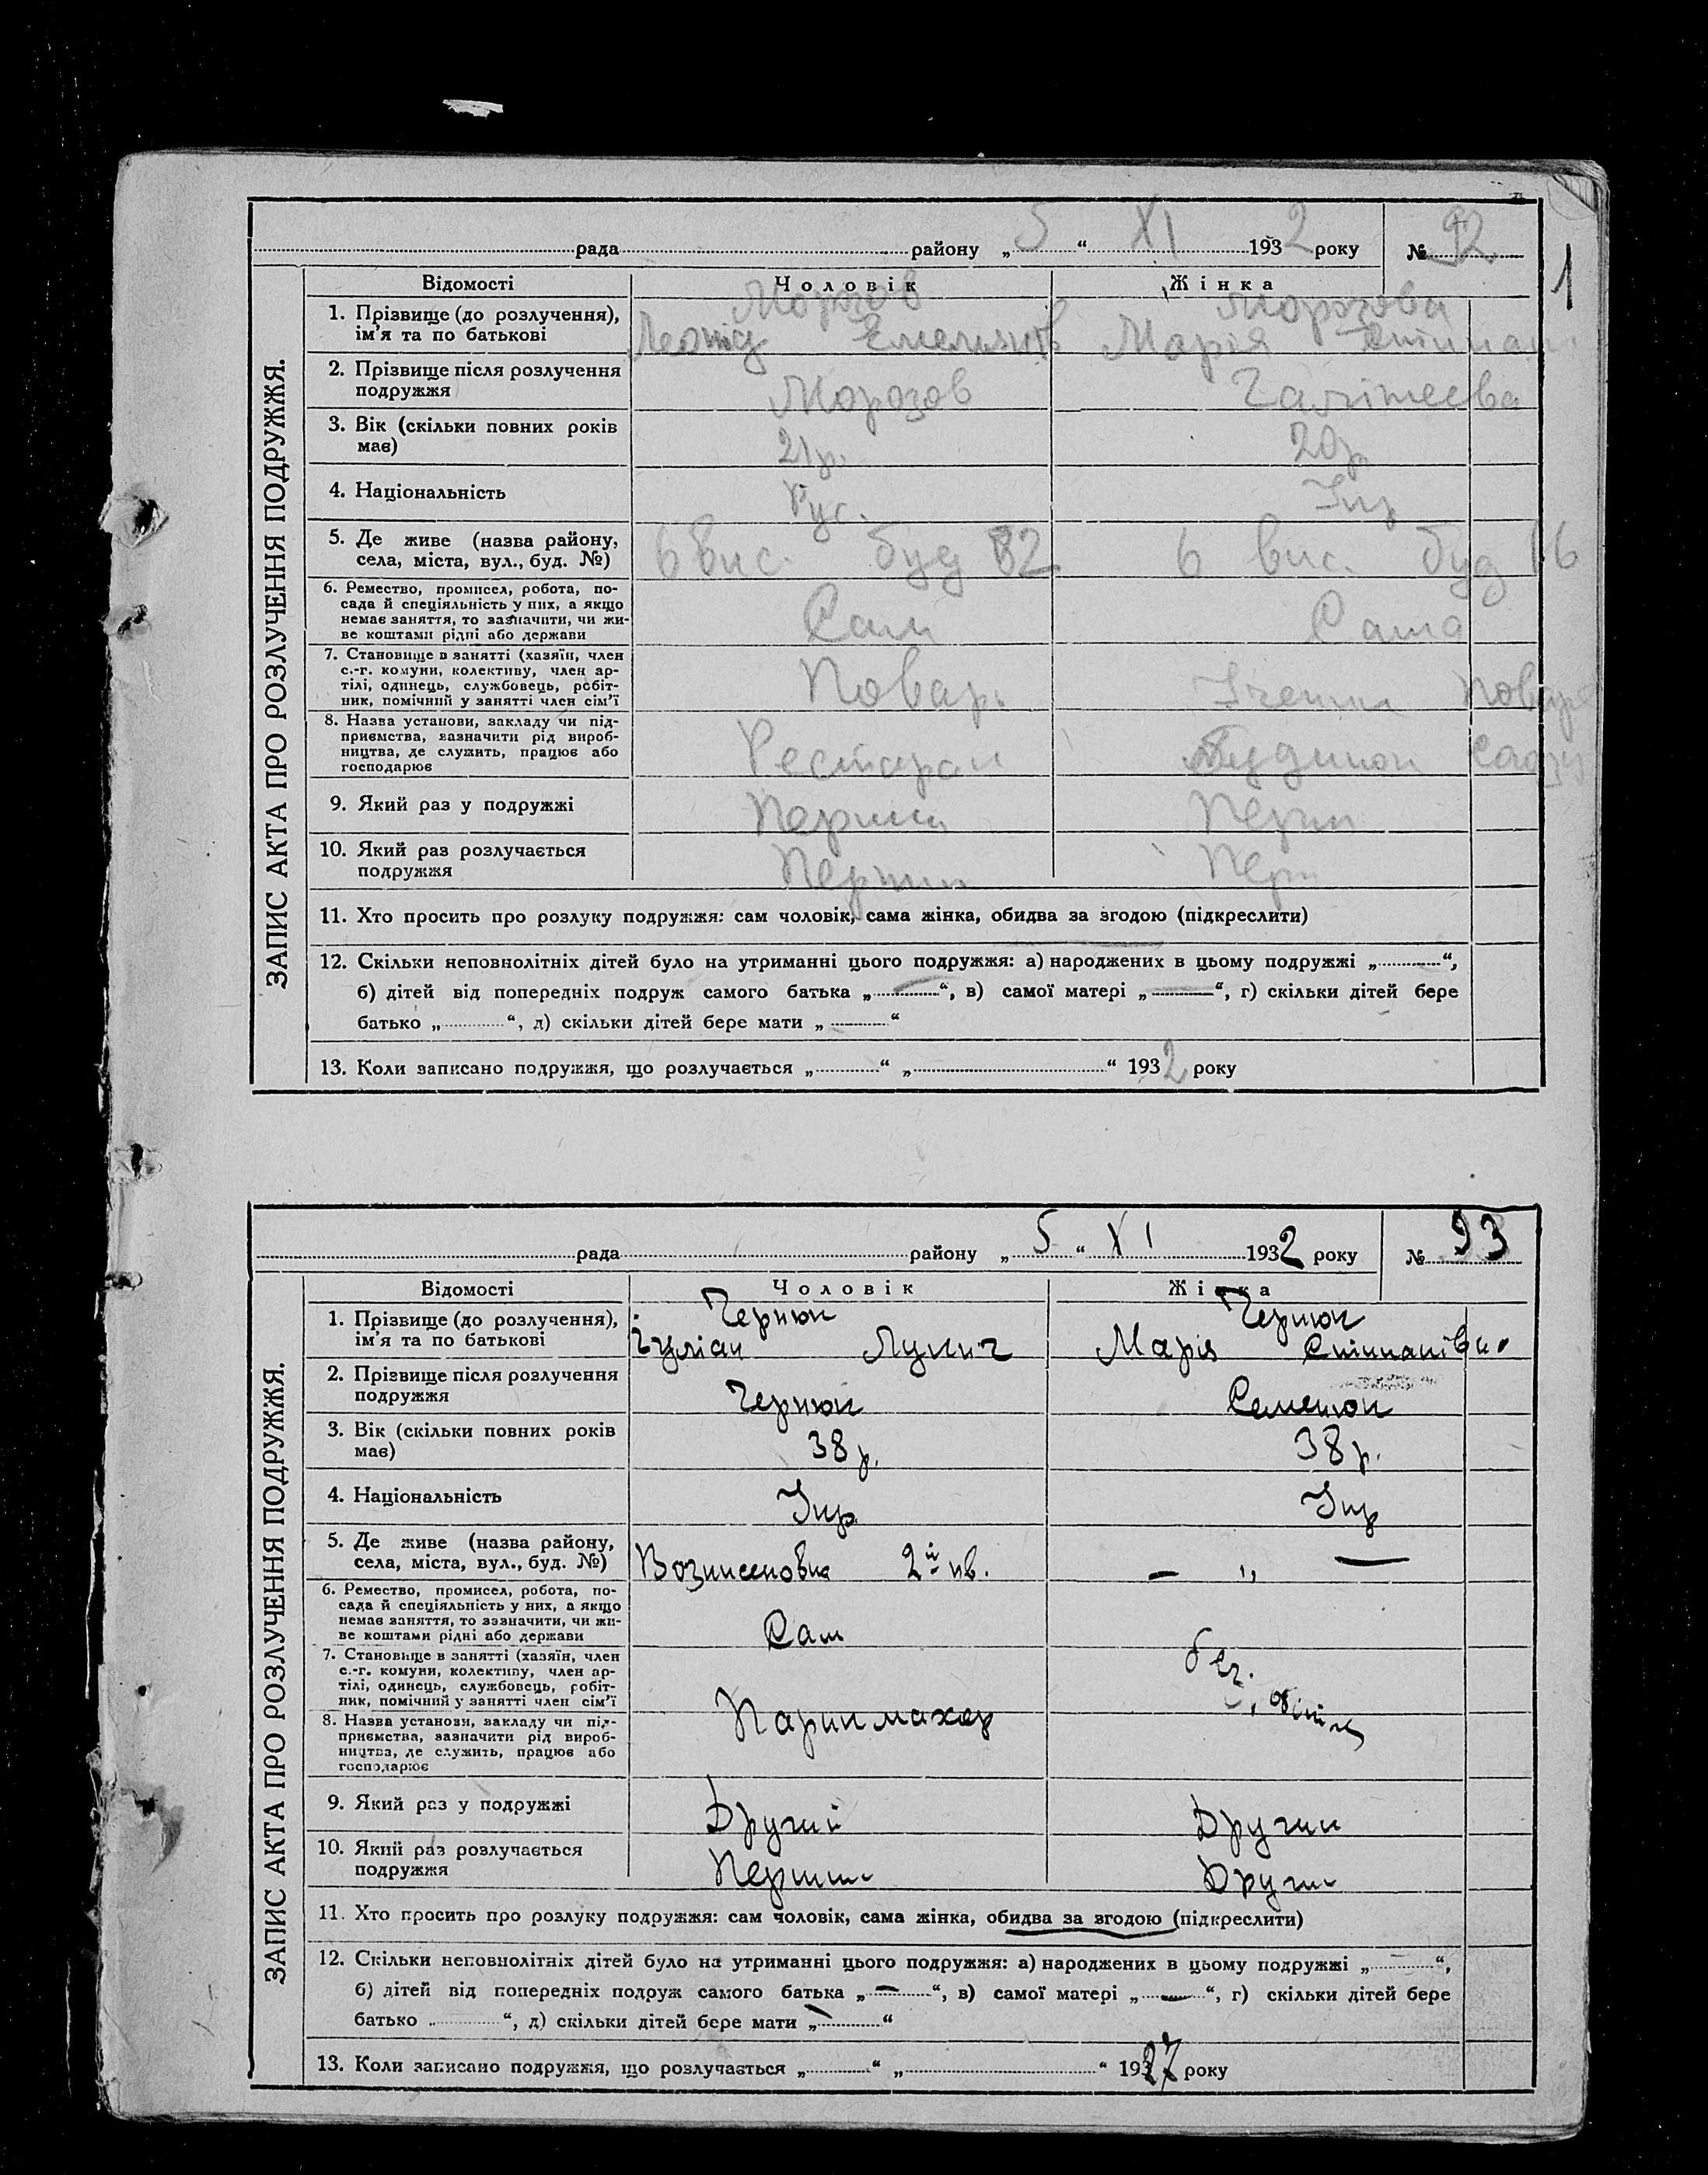 1
рада району „ 5 “ XI 1932 року № 92
ЗАПИС АКТА ПРО РОЗЛУЧЕННЯ ПОДРУЖЖЯ.
Відомості Чоловік Жінка
1. Прізвище (до розлучення), ім'я та по батькові Морозов Морозова
Леонід Марія
2. Прізвище після розлучення
подружжя Морозов
3. Вік (скільки повних років
має) 21 р. 20 р.
4. Національність Рус. Укр
5. Де живе (назва району,
села, міста, вул., буд. №) 6 вис. буд 32 6 вис. буд 16
6. Ремество, промисел, робота, по-
сада й спеціяльність у них, а якщо
немає заняття, то зазначити, чи жи-
ве коштами рідні або держави Сам Сама
7. Становище в занятті (хазяїн, член
с.-г. комуни, колективу, член ар-
тілі, одинець, службовець, робіт-
ник, помічний у занятті член сім'ї Повар.
8. Назва установи, закладу чи під-
приємства, зазначити рід вироб-
ництва, де служить, працює або
господарює Ресторан
9. Який раз у подружжі Перший Перш
10. Який раз розлучається
подружжя Перший Перш
11. Хто просить про розлуку подружжя: сам чоловік, сама жінка, обидва за згодою (підкреслити)
12. Скільки неповнолітніх дітей було на утриманні цього подружжя: а) народжених в цьому подружжі „ “,
б) дітей від попередніх подруж самого батька „ — “, в) самої матері „ — “, г) скільки дітей бере
батько „ “, д) скільки дітей бере мати „ “
13. Коли записано подружжя, що розлучається „ “ „ “ 1932 року
рада району „ 5 “ XI 1932 року № 93
ЗАПИС АКТА ПРО РОЗЛУЧЕННЯ ПОДРУЖЖЯ.
Відомості Чоловік Жінка
1. Прізвище (до розлучення),
ім'я та по батькові Чернюк Чернюк
Марія Степанівна
2. Прізвище після розлучення
подружжя Чернюк Семенюк
3. Вік (скільки повних років
має) 38 р. 38 р.
4. Національність Укр Укр
5. Де живе (назва району,
села, міста, вул., буд. №) 2й — „ —
6. Ремество, промисел, робота, по-
сада й спеціяльність у них, а якщо
немає заняття, то зазначити, чи жи-
ве коштами рідні або держави Сам
7. Становище в занятті (хазяїн, член
с.-г. комуни, колективу, член ар-
тілі, одинець, службовець, робіт-
ник, помічний у занятті член сім'ї
8. Назва установи, закладу чи під-
приємства, зазначити рід вироб-
ництва, де служить, працює або
господарює Парикмахер
9. Який раз у подружжі Другий Другий
10. Який раз розлучається
подружжя Перший Другий
11. Хто просить про розлуку подружжя: сам чоловік, сама жінка, обидва за згодою (підкреслити)
12. Скільки неповнолітніх дітей було на утриманні цього подружжя: а) народжених в цьому подружжі „ “,
б) дітей від попередніх подруж самого батька „ — “, в) самої матері „ — “, г) скільки дітей бере
батько „ “, д) скільки дітей бере мати „ — “
13. Коли записано подружжя, що розлучається „ “ „ “ 1927 року